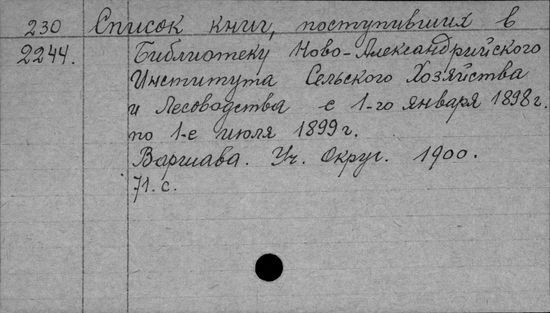 230 Список книг, поступивших в
2244. Библиотеку Ново-Александрийского
Института Сельского Хозяйства
и Лесоводства с 1-го января 1898 г.
по 1-е июля 1899 г.
Варшава. Уч. Округ. 1900.
71. с.